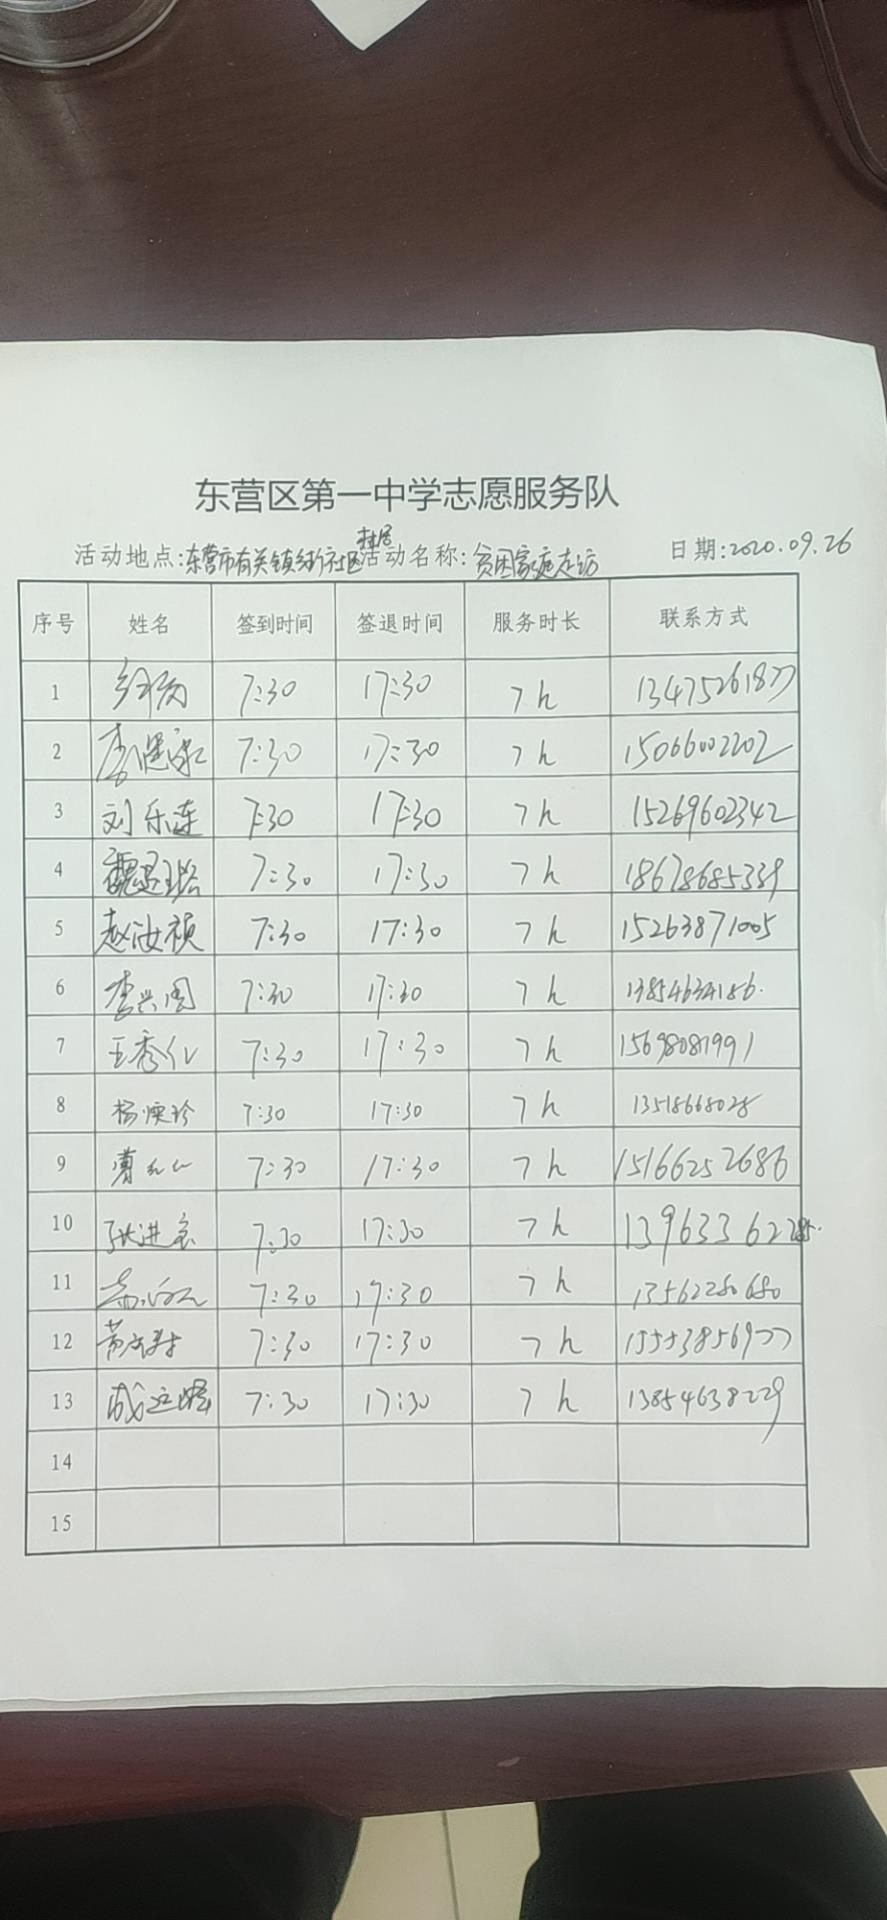 东营区第一中学志愿服务队
活动地点:东营市有关镇街社区 活动名称:贫困家庭走访 日期:2020.09.26
序号 姓名 签到时间 签退时间 服务时长 联系方式
1 7:30 17:30 7h 13475261877
2 7:30 17:30 7h 15066002202
3 刘乐连 7:30 17:30 7h 15269602342
4 7:30 17:30 7h 18678685339
5 赵汝祯 7:30 17:30 7h 15263871005
6 李兴国 7:30 17:30 7h 13854634186.
7 王秀仁 7:30 17:30 7h 15698081991
8 7:30 17:30 7h 13518668028
9 7:30 17:30 7h 15166252686
10 张进 7:30 17:30 7h
11 7:30 17:30 7h 13562280680
12 7:30 17:30 7h 15553856977
13 7:30 17:30 7h 13854638229
14
15